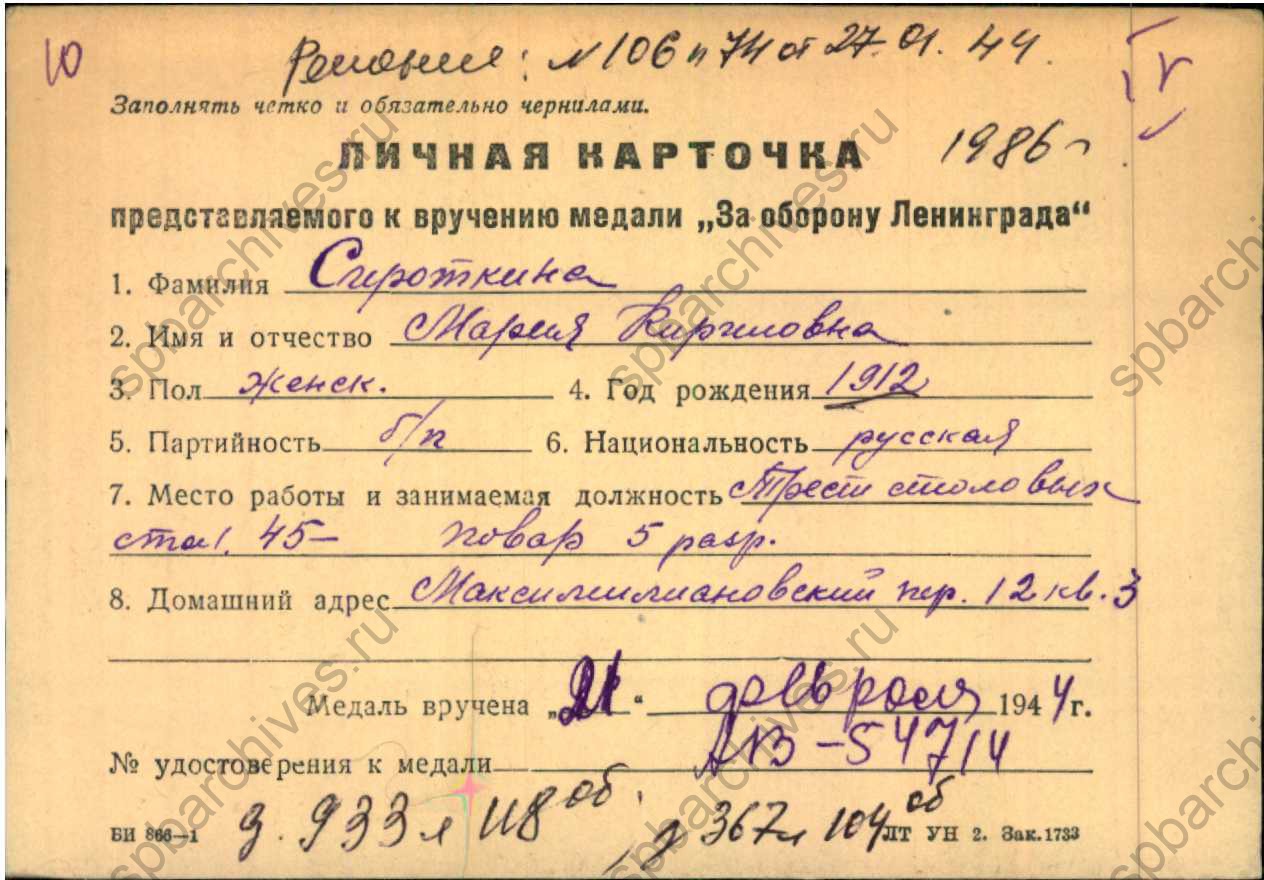 10
Решение: № 106 п 74 от 27.01.44.
Заполнять четко и обязательно чернилами.
ЛИЧНАЯ КАРТОЧКА
1986
представляемого к вручению медали „За оборону Ленинграда“
1. Фамилия Сироткина
2. Имя и отчество Мария Кирилловна
3. Пол женск. 4. Год рождения 1912
5. Партийность б/п 6. Национальность русская
7. Место работы и занимаемая должность Трест столовых
стол. 45 – повар 5 разр.
8. Домашний адрес Максимилиановский пер. 12 кв. 3
Медаль вручена „21“ февраля 1944 г.
№ удостоверения к медали АВ-54714
БИ 866—1 д. 933 л 118 об. д 367 л 104 об ЛТ УН 2. Зак. 1733
spbarchives.ru